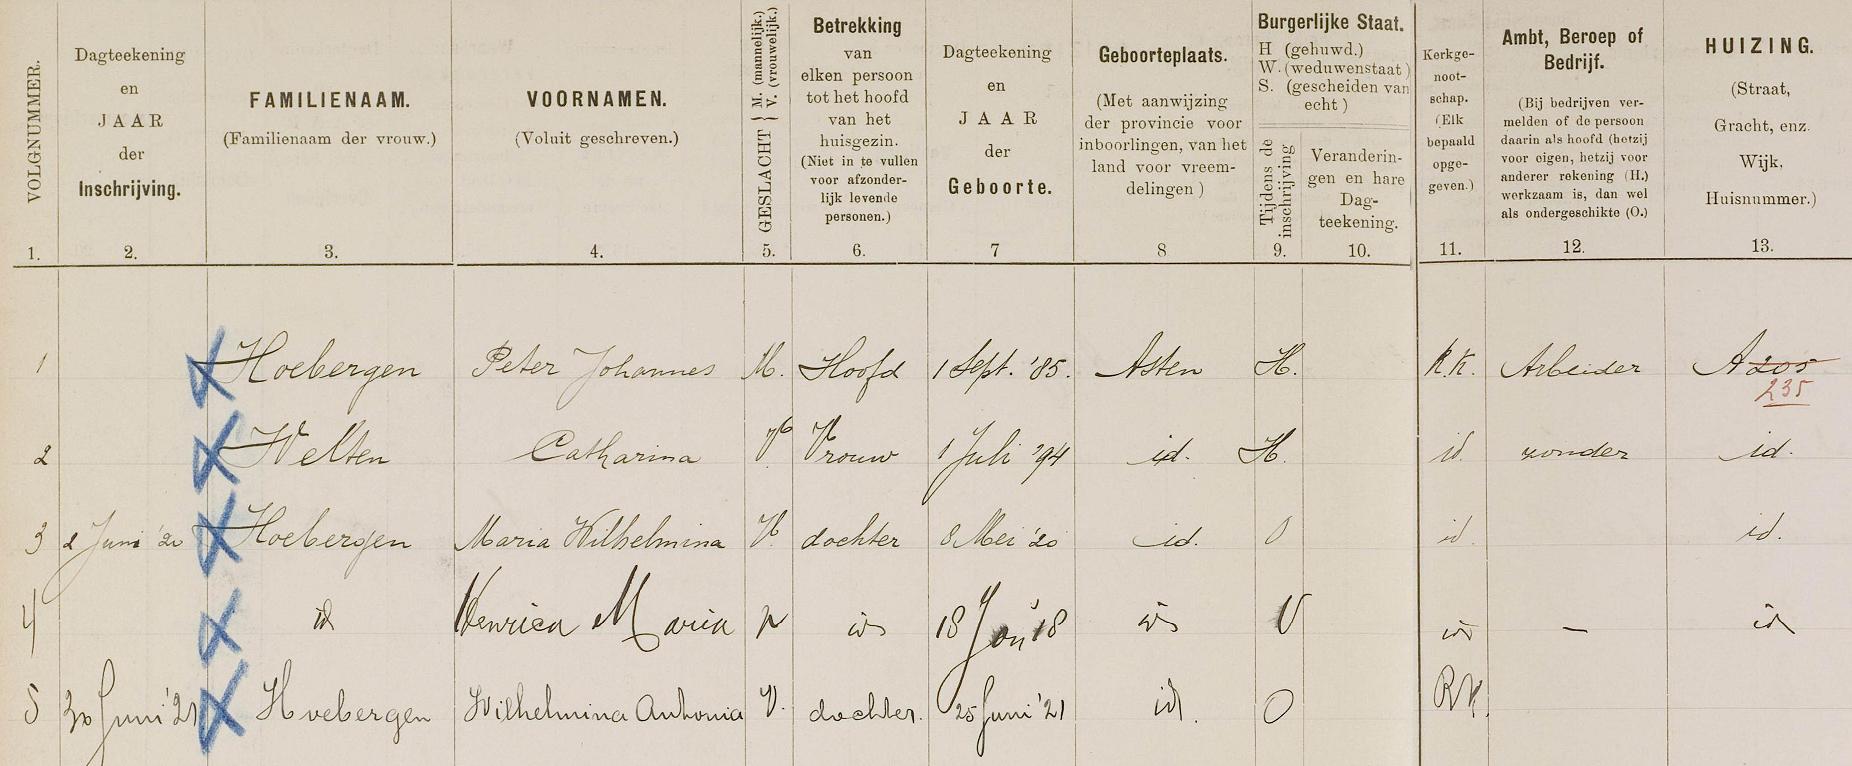 VOLGNUMMER.
1.
Dagteekening
en
JAAR
der
Inschrijving.
2.
FAMILIENAAM.
(Familienaam der vrouw.)
3.
VOORNAMEN.
(Voluit geschreven.)
4.
GESLACHT { M. (mannelijk.) V. (vrouwelijk.)
5.
Betrekking
van
elken persoon
tot het hoofd
van het
huisgezin.
(Niet in te vullen
voor afzonder-
lijk levende
personen.)
6.
Dagteekening
en
JAAR
der
Geboorte.
7
Geboorteplaats.
(Met aanwijzing
der provincie voor
inboorlingen, van het
land voor vreem-
delingen)
8
Burgerlijke Staat.
H (gehuwd.)
W. (weduwenstaat)
S. (gescheiden van
echt)
Tijdens de
inschrijving
9.
Veranderin-
gen en hare
Dag-
teekening.
10.
Kerkge-
noot-
schap.
(Elk
bepaald
opge-
geven.)
11.
Ambt, Beroep of
Bedrijf.
(Bij bedrijven ver-
melden of de persoon
daarin als hoofd (hetzij
voor eigen, hetzij voor
anderer rekening (H.)
werkzaam is, dan wel
als ondergeschikte (O.)
12.
HUIZING.
(Straat,
Gracht, enz.
Wijk,
Huisnummer.)
13.
1 Hoebergen Peter Johannes M. Hoofd 1 Sept. '85. Asten H. R.K. Arbeider A 205
235
2 Welten Catharina V Vrouw 1 Juli '94 id. H. id. zonder id.
3 2 Juni '20 Hoebergen Maria Wilhelmina V. dochter 8 Mei '20 id. O id. id.
4 id Henrica Maria V id 18 Jan '18 id O id — id
5 30 Juni '21 Hoebergen Wilhelmina Antonia V. dochter. 25 Juni '21 id. O RK.